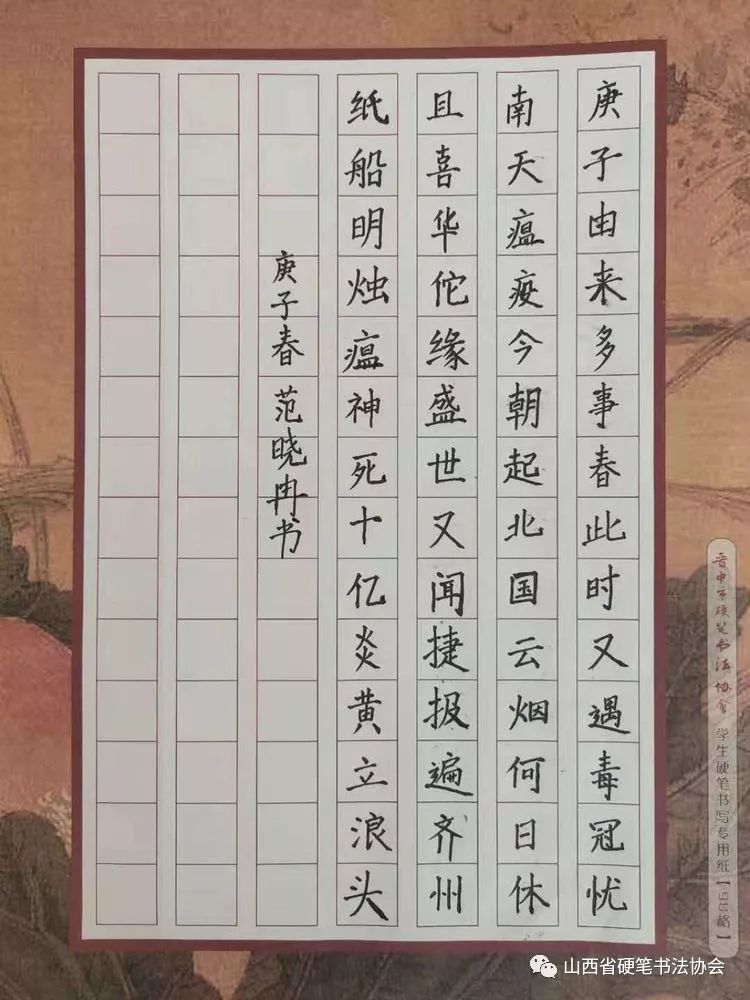 庚子由来多事春此时又遇毒冠忧
南天瘟疫今朝起北国云烟何日休
且喜华佗缘盛世又闻捷报遍齐州
纸船明烛瘟神死十亿炎黄立浪头
庚子春 范晓冉书
晋中市硬笔书法协会 学生硬笔书写专用纸【98格】
山西省硬笔书法协会